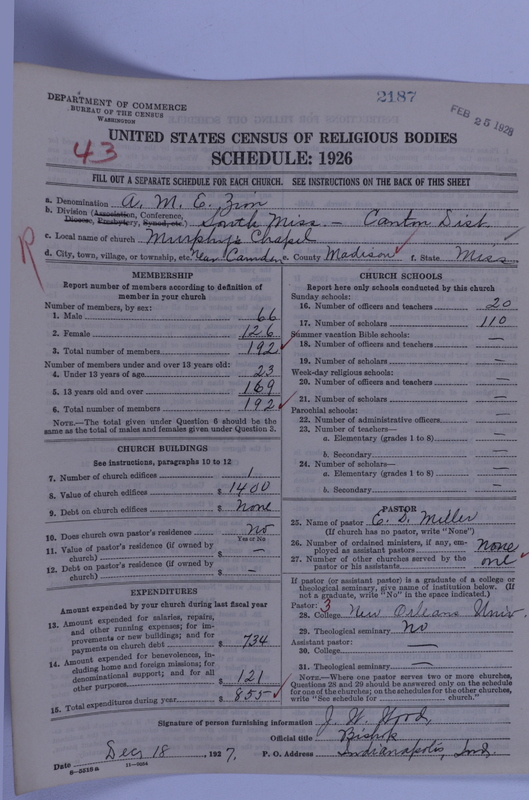 2187
FEB 25 1928
DEPARTMENT OF COMMERCE
BUREAU OF THE CENSUS
WASHINGTON
43
UNITED STATES CENSUS OF RELIGIOUS BODIES
SCHEDULE: 1926
FILL OUT A SEPARATE SCHEDULE FOR EACH CHURCH. SEE INSTRUCTIONS ON THE BACK OF THIS SHEET
a. Denomination A. M. E. Zion
b. Division (Association, Conference, Diocese, Presbytery, Synod, etc.) South Miss. — Canton Dist.
c. Local name of church Murphy's Chapel
R
d. City, town, village, or township, etc. Near Camden e. County Madison f. State Miss
MEMBERSHIP
Report number of members according to definition of
member in your church
Number of members, by sex:
1. Male 66
2. Female 126
3. Total number of members 192
Number of members under and over 13 years old:
4. Under 13 years of age 23
5. 13 years old and over 169
6. Total number of members 192
NOTE.—The total given under Question 6 should be the
same as the total of males and females given under Question 3.
CHURCH BUILDINGS
See instructions, paragraphs 10 to 12
7. Number of church edifices 1
8. Value of church edifices $ 1400
9. Debt on church edifices $ None
10. Does church own pastor's residence? No
Yes or No
11. Value of pastor's residence (if owned by
church) $ —
12. Debt on pastor's residence (if owned by
church) $ —
EXPENDITURES
Amount expended by your church during last fiscal year
13. Amount expended for salaries, repairs,
and other running expenses; for im-
provements or new buildings; and for
payments on church debt $ 734
14. Amount expended for benevolences, in-
cluding home and foreign missions; for
denominational support; and for all
other purposes $ 121
15. Total expenditures during year $ 855
CHURCH SCHOOLS
Report here only schools conducted by this church
Sunday schools:
16. Number of officers and teachers 20
17. Number of scholars 110
Summer vacation Bible schools:
18. Number of officers and teachers —
19. Number of scholars —
Week-day religious schools:
20. Number of officers and teachers —
21. Number of scholars —
Parochial schools:
22. Number of administrative officers —
23. Number of teachers—
a. Elementary (grades 1 to 8) —
b. Secondary —
24. Number of scholars—
a. Elementary (grades 1 to 8) —
b. Secondary —
PASTOR
25. Name of pastor E. D. Miller
(If church has no pastor, write "None")
26. Number of ordained ministers, if any, em-
ployed as assistant pastors none
27. Number of other churches served by the
pastor or his assistants one
If pastor (or assistant pastor) is a graduate of a college or
theological seminary, give name of institution below. (If
not a graduate, write "No" in the space indicated.)
Pastor: 3
28. College New Orleans Univ.
29. Theological seminary No
Assistant pastor:
30. College —
31. Theological seminary —
NOTE.—Where one pastor serves two or more churches,
Questions 28 and 29 should be answered only on the schedule
for one of the churches; on the schedules for the other churches,
write "See schedule for church."
Signature of person furnishing information J. W. Wood,
Official title Bishop
Date Dec 18, 1927. P. O. Address Indianapolis, Ind.
8-5519a 11-9054